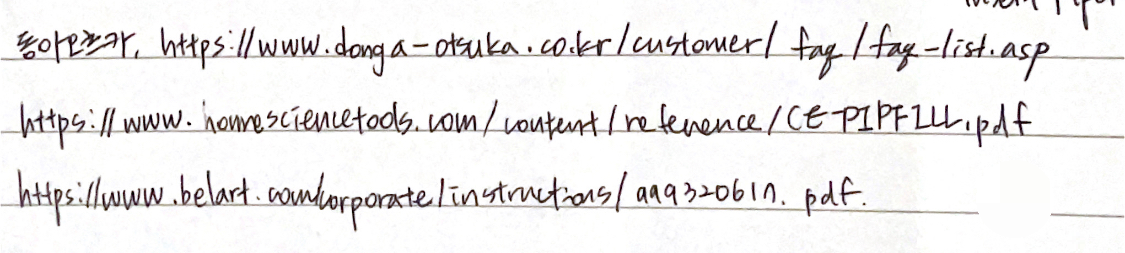 동아오츠카, https://www.donga-otsuka.co.kr/customer/ faq/faq-list.asp
https://www.homesciencetools.com/content/reference/CE-PIPFILL.pdf
https://www.belart.com/corporate/instructions/a99320617.pdf.